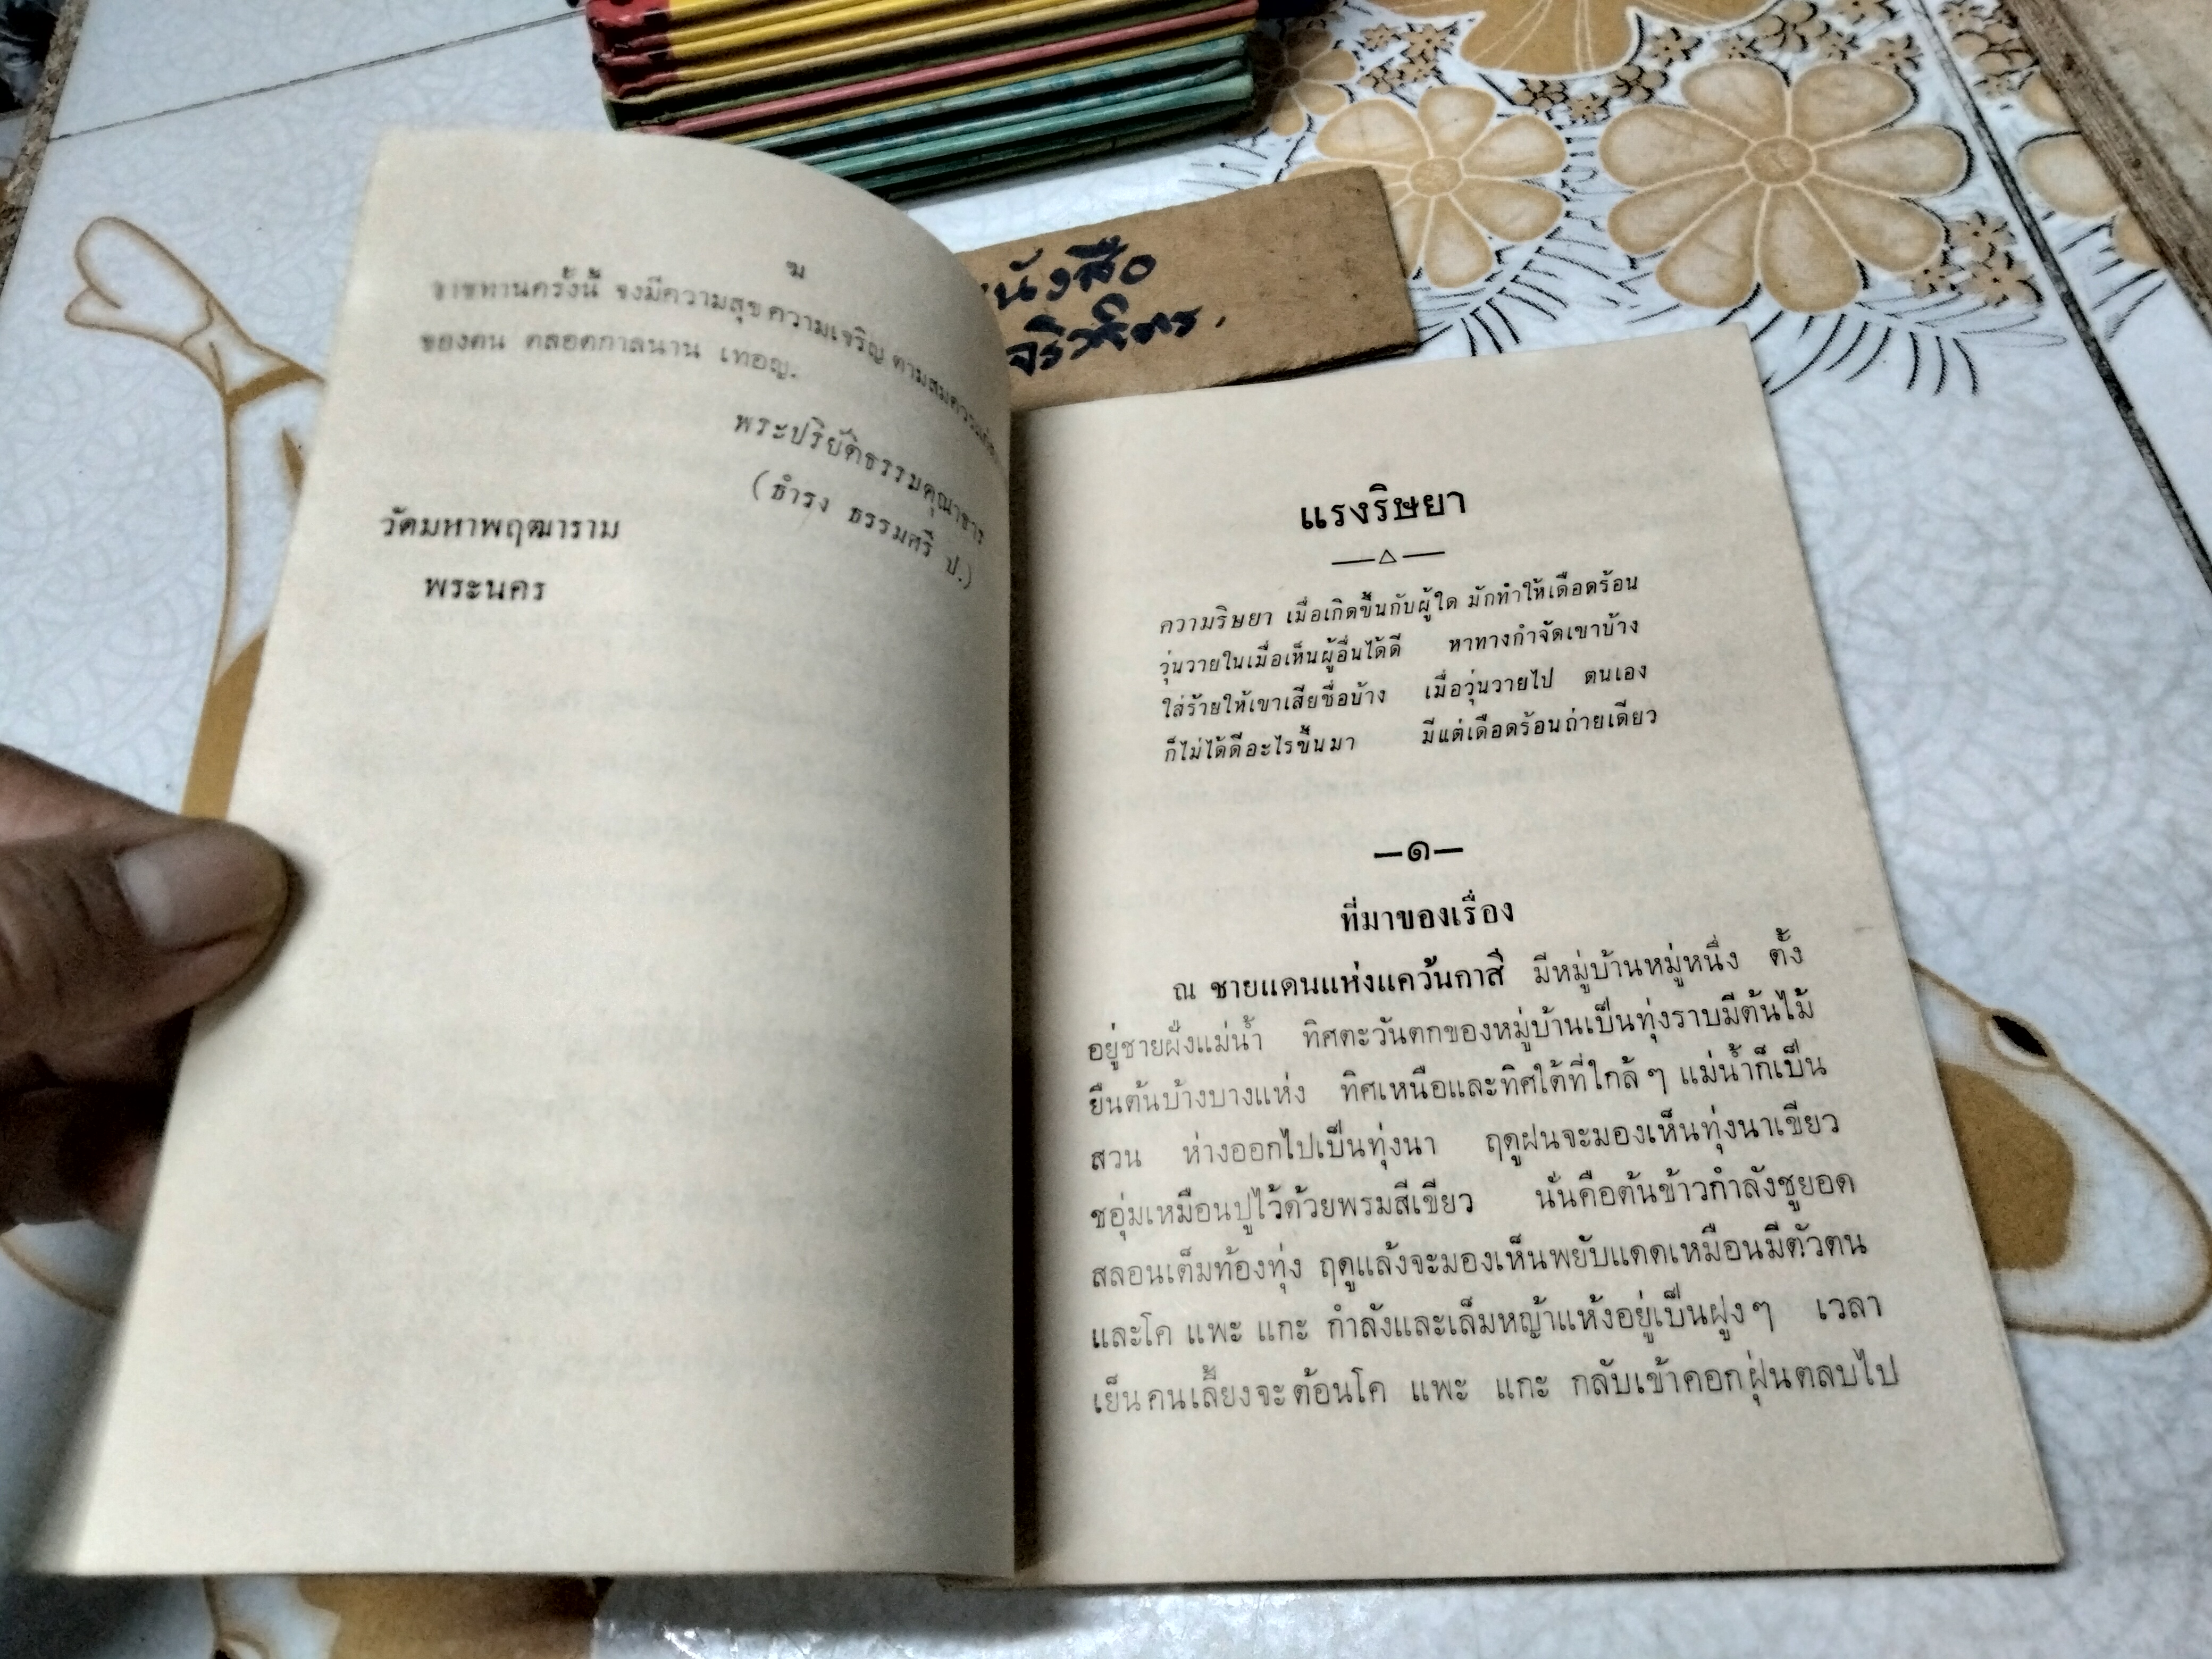 ฆ
ราชทานครั้งนี้ จงมีความสุขความเจริญ ตามสมควรแก่
ของตน ตลอดกาลนาน เทอญ.
พระปริยัติธรรมคุณาธาร
(ธำรง ธรรมศรี ป.)
วัดมหาพฤฒาราม
พระนคร
หนังสือ
แรงริษยา
ความริษยา เมื่อเกิดขึ้นกับผู้ใด มักทำให้เดือดร้อน
วุ่นวายในเมื่อเห็นผู้อื่นได้ดี หาทางกำจัดเขาบ้าง
ใส่ร้ายให้เขาเสียชื่อบ้าง เมื่อวุ่นวายไป ตนเอง
ก็ไม่ได้ดีอะไรขึ้นมา มีแต่เดือดร้อนถ่ายเดียว
—๑—
ที่มาของเรื่อง
ณ ชายแดนแห่งแคว้นกาสี มีหมู่บ้านหมู่หนึ่ง ตั้ง
อยู่ชายฝั่งแม่น้ำ ทิศตะวันตกของหมู่บ้านเป็นทุ่งราบมีต้นไม้
ยืนต้นบ้างบางแห่ง ทิศเหนือและทิศใต้ที่ใกล้ ๆ แม่น้ำก็เป็น
สวน ห่างออกไปเป็นทุ่งนา ฤดูฝนจะมองเห็นทุ่งนาเขียว
ชอุ่มเหมือนปูไว้ด้วยพรมสีเขียว นั่นคือต้นข้าวกำลังชูยอด
สลอนเต็มท้องทุ่ง ฤดูแล้งจะมองเห็นพยับแดดเหมือนมีตัวตน
และโค แพะ แกะ กำลังและเล็มหญ้าแห้งอยู่เป็นฝูง ๆ เวลา
เย็นคนเลี้ยงจะต้อนโค แพะ แกะ กลับเข้าคอกฝุ่นตลบไป